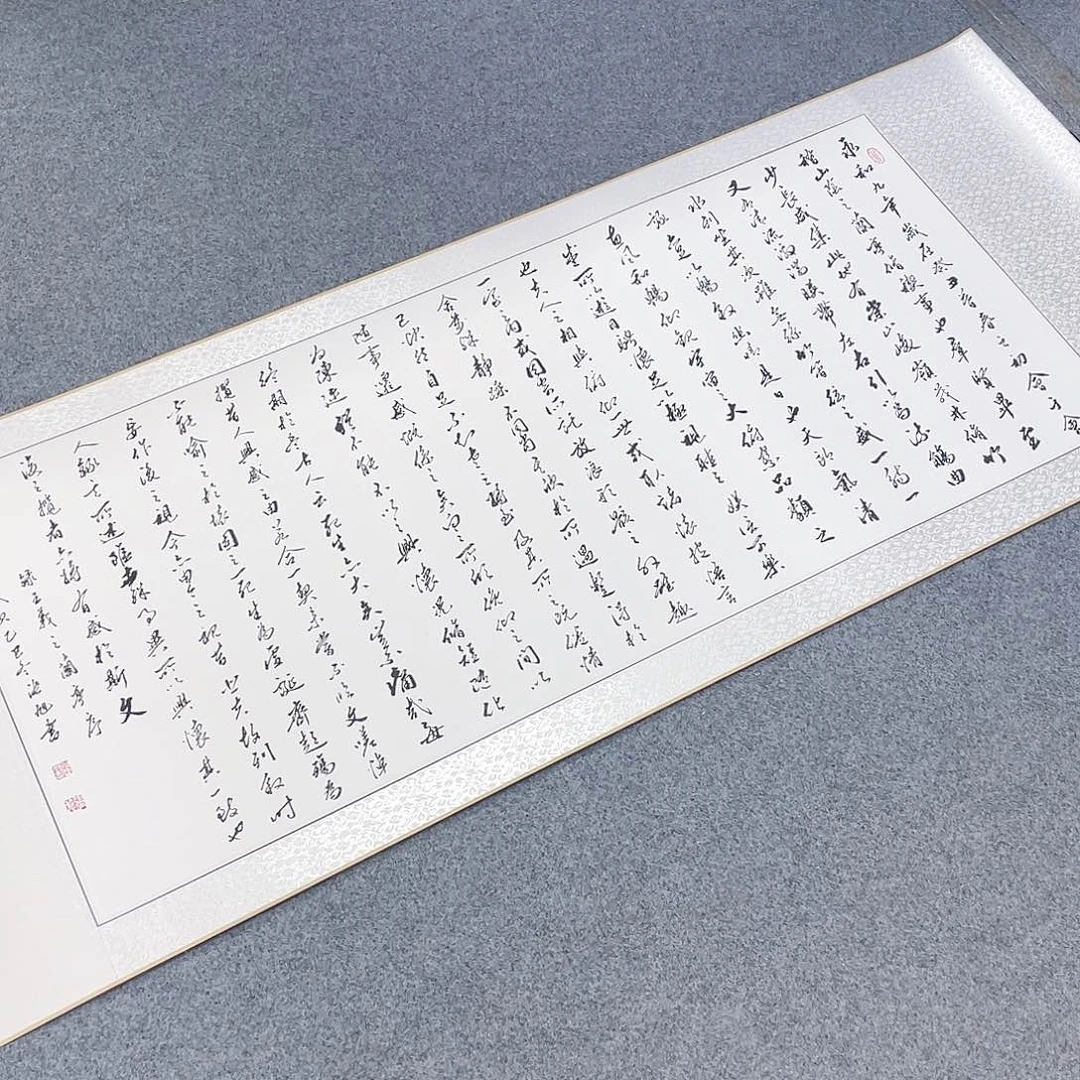 永和九年歲在癸丑暮春之初會于會
稽山陰之蘭亭脩禊事也群賢畢至
少長咸集此地有崇山峻嶺茂林脩竹
又有清流激湍暎帶左右引以為流觴曲
水列坐其次雖無絲竹管弦之盛一觴一
詠亦足以暢敘幽情是日也天朗氣清
惠風和暢仰觀宇宙之大俯察品類之
盛所以遊目騁懷足以極視聽之娛信可樂
也夫人之相與俯仰一世或取諸懷抱悟言
一室之內或因寄所託放浪形骸之外雖趣
舍萬殊靜躁不同當其欣於所遇暫得於
己快然自足不知老之將至及其所之既倦情
隨事遷感慨係之矣向之所欣俛仰之間以
為陳迹猶不能不以之興懷況脩短隨化
終期於盡古人云死生亦大矣豈不痛哉每
攬昔人興感之由若合一契未嘗不臨文嗟悼
不能喻之於懷固知一死生為虛誕齊彭殤為
妄作後之視今亦由今之視昔悲夫故列敘時
人錄其所述雖世殊事異所以興懷其一致也
後之攬者亦將有感於斯文
錄王羲之蘭亭序
己巳冬海旭書